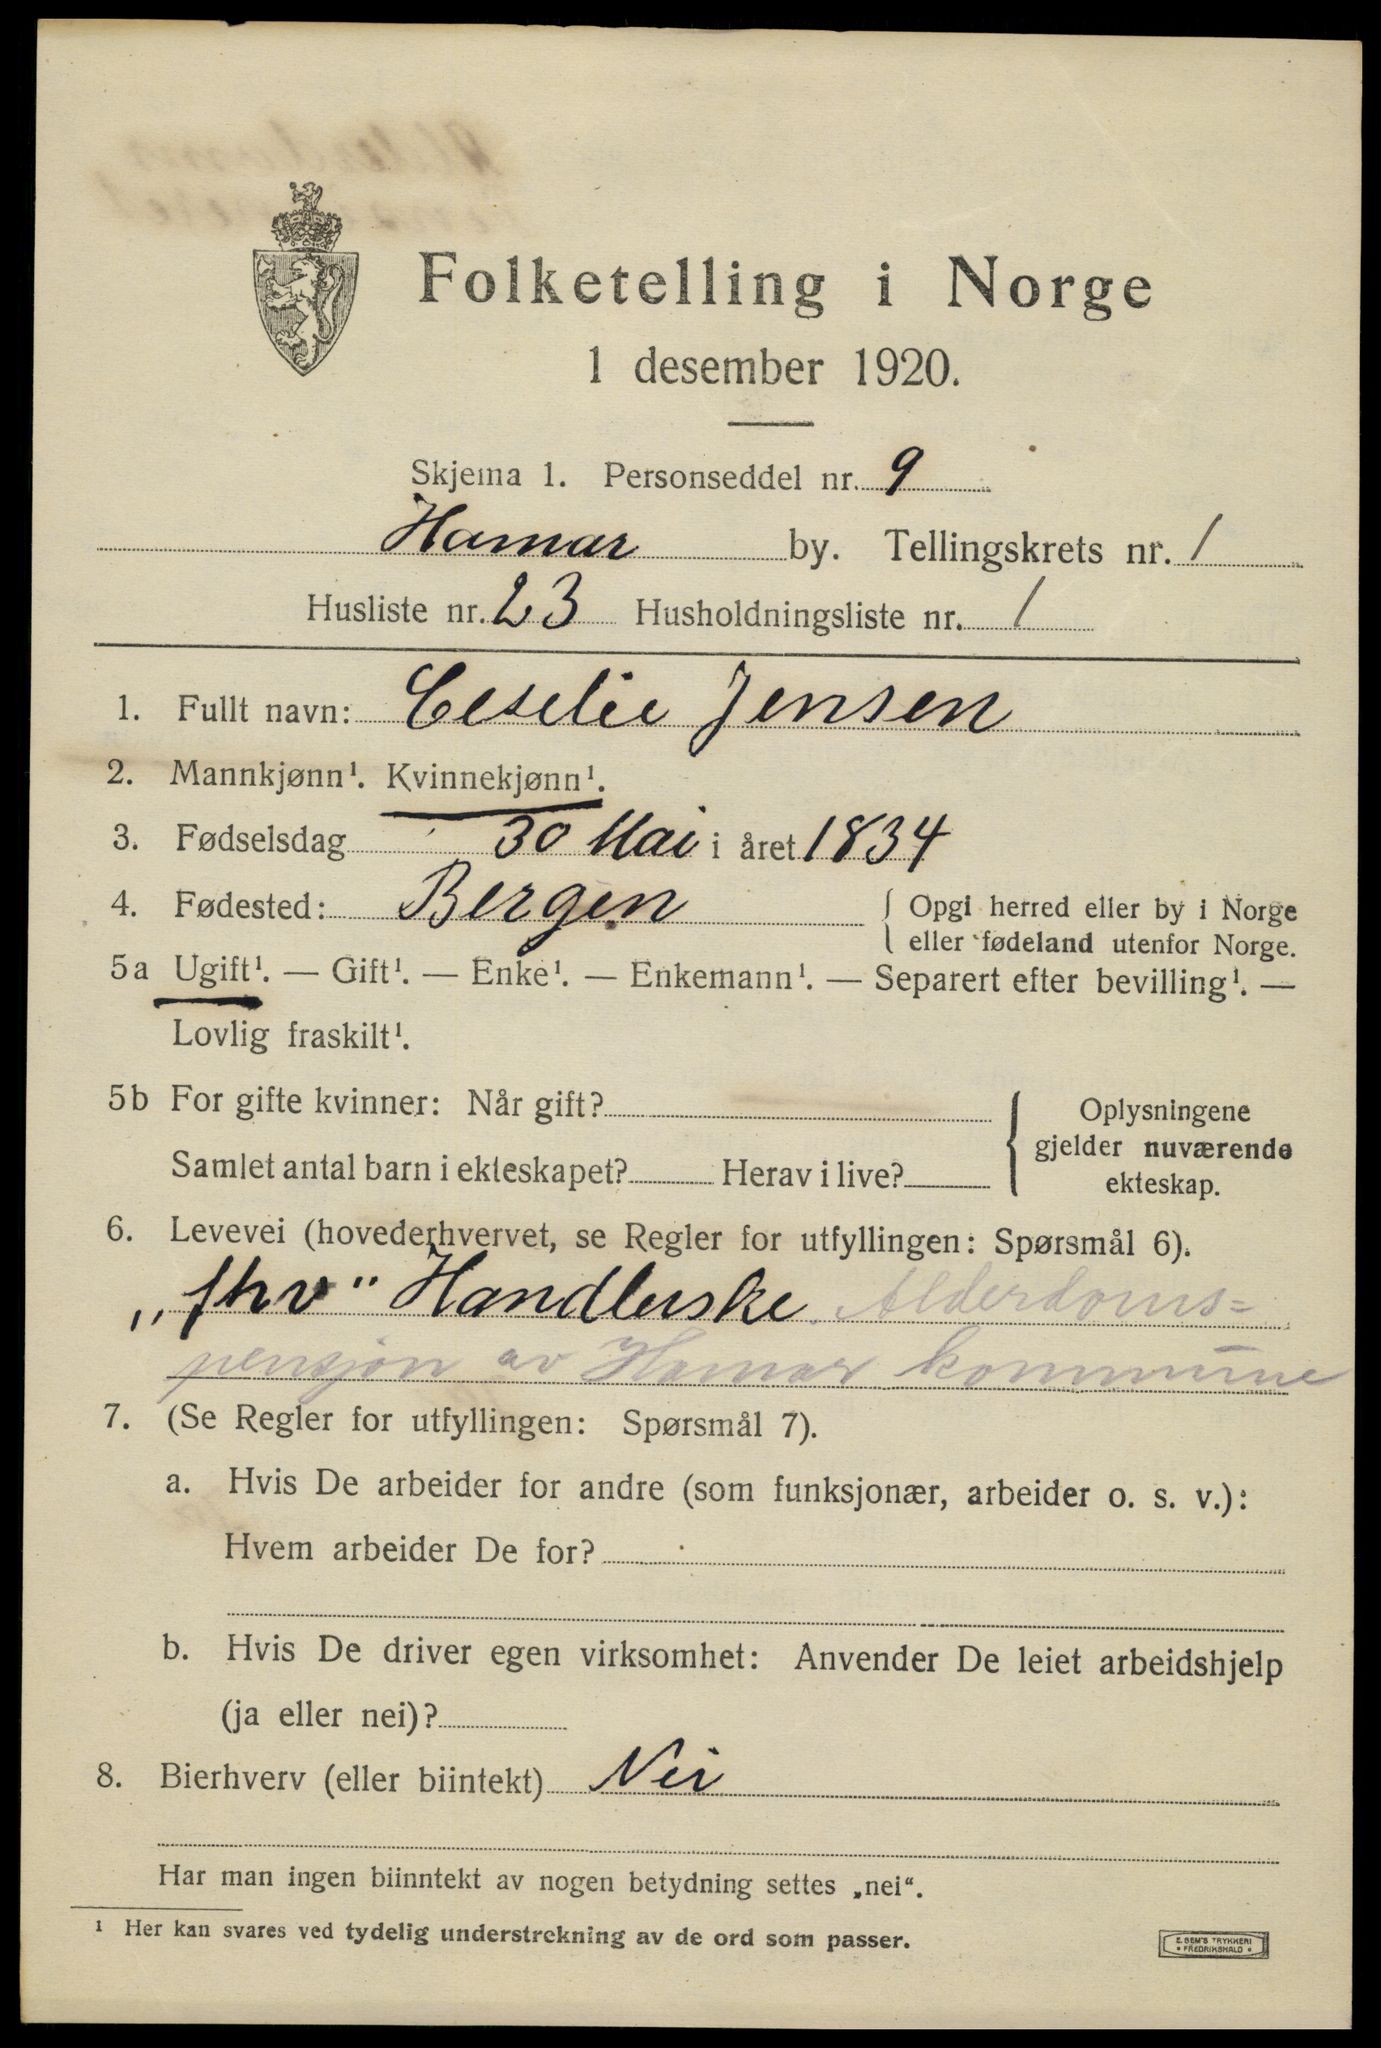 Folketelling i Norge
1 desember 1920.
Skjema 1. Personseddel nr. 9
Hamar by. Tellingskrets nr. 1
Husliste nr. 23 Husholdningsliste nr. 1
1. Fullt navn: Ceselie Jensen
2. Mannkjønn¹. Kvinnekjønn¹.
3. Fødselsdag 30 Mai i året 1834
4. Fødested: Bergen { Opgi herred eller by i Norge
eller fødeland utenfor Norge.
5a Ugift¹. — Gift¹. — Enke¹. — Enkemann¹. — Separert efter bevilling¹. —
Lovlig fraskilt¹.
5b For gifte kvinner: Når gift? } Oplysningene
gjelder nuværende
Samlet antal barn i ekteskapet? Herav i live? ekteskap.
6. Levevei (hovederhvervet, se Regler for utfyllingen: Spørsmål 6).
„fhv" Handlerske. Alderdoms-
pensjon av Hamar kommune
7. (Se Regler for utfyllingen: Spørsmål 7).
a. Hvis De arbeider for andre (som funksjonær, arbeider o. s. v.):
Hvem arbeider De for?
b. Hvis De driver egen virksomhet: Anvender De leiet arbeidshjelp
(ja eller nei)?
8. Bierhverv (eller biintekt) Nei
Har man ingen biinntekt av nogen betydning settes „nei“.
¹ Her kan svares ved tydelig understrekning av de ord som passer.
E. SEM'S TRYKKERI
• FREDRIKSHALD •